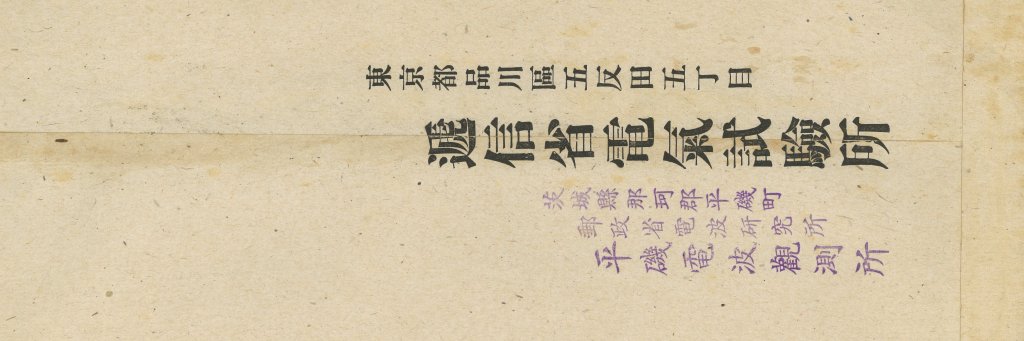 東京都品川區五反田五丁目
遞信省電氣試驗所
茨城縣那珂郡平磯町
郵政省電波研究所
平磯電波觀測所